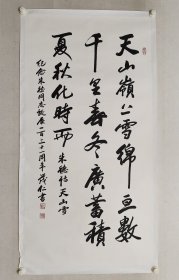 天山嶺上雪綿亘數
千里春冬廣蓄積
夏秋化時雨 朱德詩天山雪
纪念朱德同志诞辰一百二十一周年 茂仁書